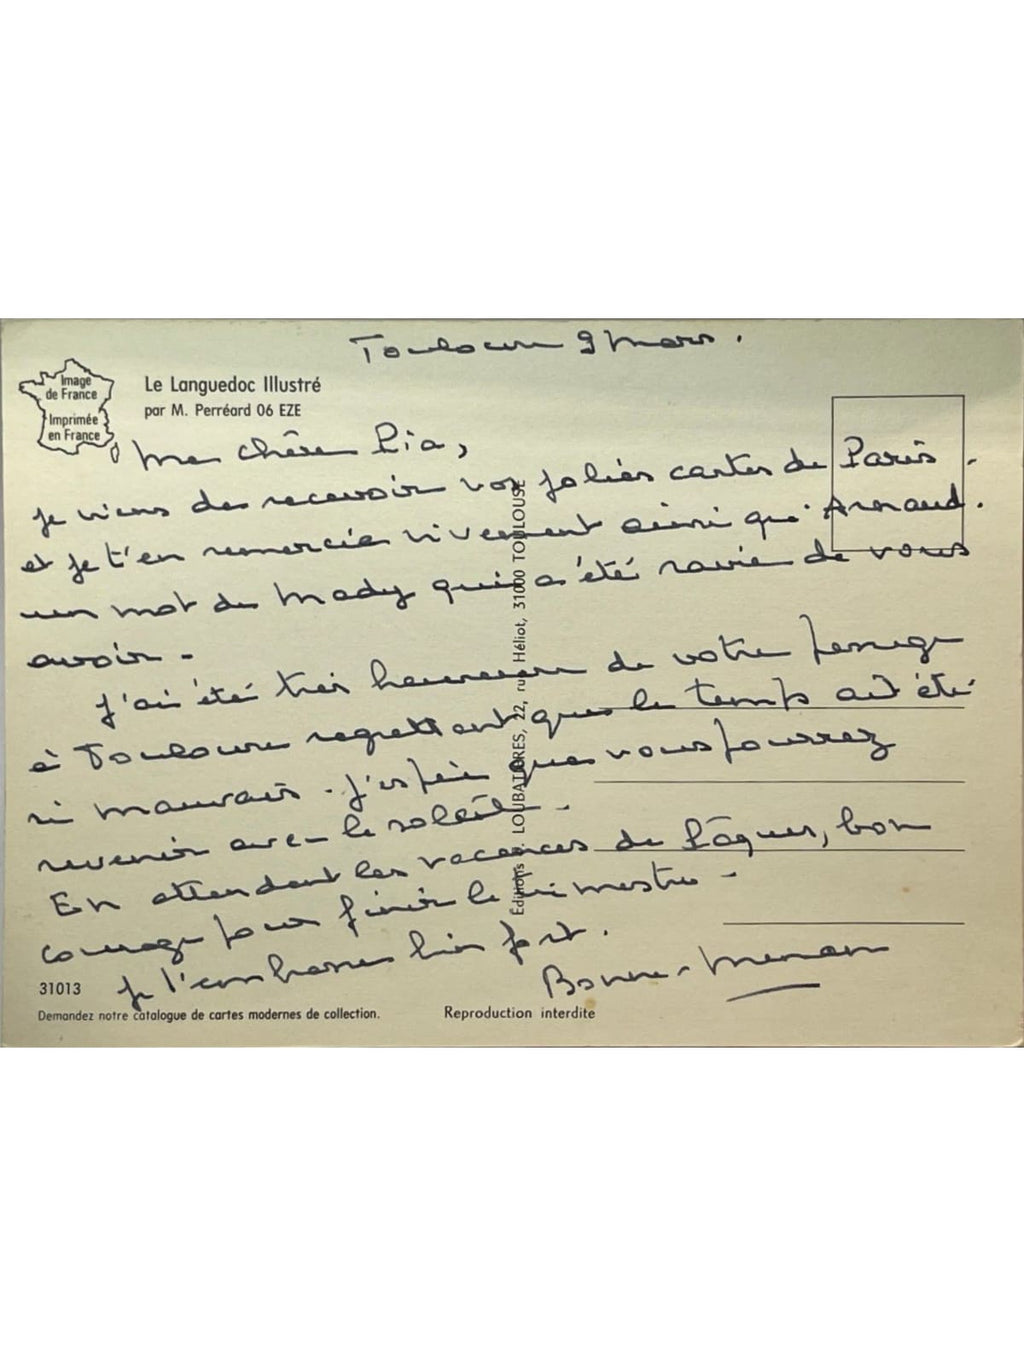 Toulouse 9 Mars.
Image
de France
Imprimée
en France
Le Languedoc Illustré
par M. Perréard 06 EZE
Ma chère Pia,
je viens de recevoir vos jolies cartes de Paris.
et je t'en remercie vivement ainsi qu'Arnaud.
un mot de Mady qui a été ravie de vous
avoir -
J'ai été très heureuse de votre passage
à Toulouse regrettant que le temps ait été
si mauvais. J'espère que vous pourrez
revenir avec le soleil -
En attendant les vacances de Pâques, bon
courage pour finir le trimestre -
Je t'embrasse bien fort.
Bonne-Maman
Éditions LOUBATIÈRES, 22, rue Héliot, 31000 TOULOUSE
31013
Demandez notre catalogue de cartes modernes de collection.
Reproduction interdite